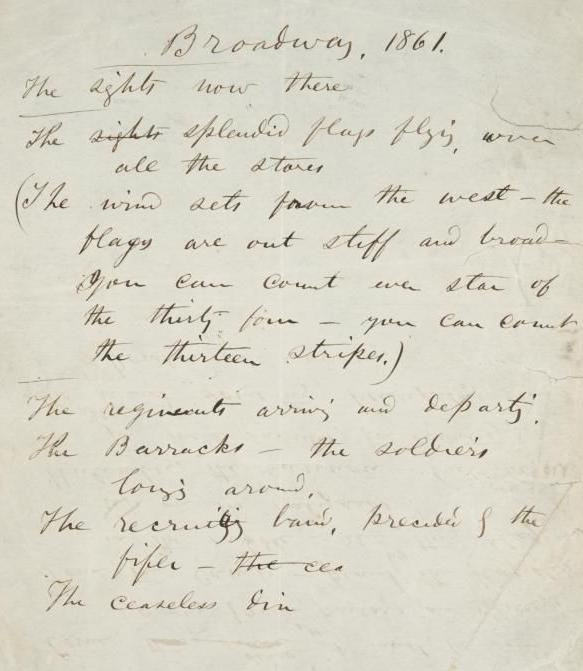 Broadway, 1861.
The sights now there
The sights splendid flags flying, over
all the stores
(The wind sets from the west – the
flags are out stiff and broad –
you can count every star of
the thirty four – you can count
the thirteen stripes.)
The regiments arriving and departing,
The Barracks – the soldiers
lounging around,
The recruiting band, preceded by the
fifer – the cea
The ceaseless din